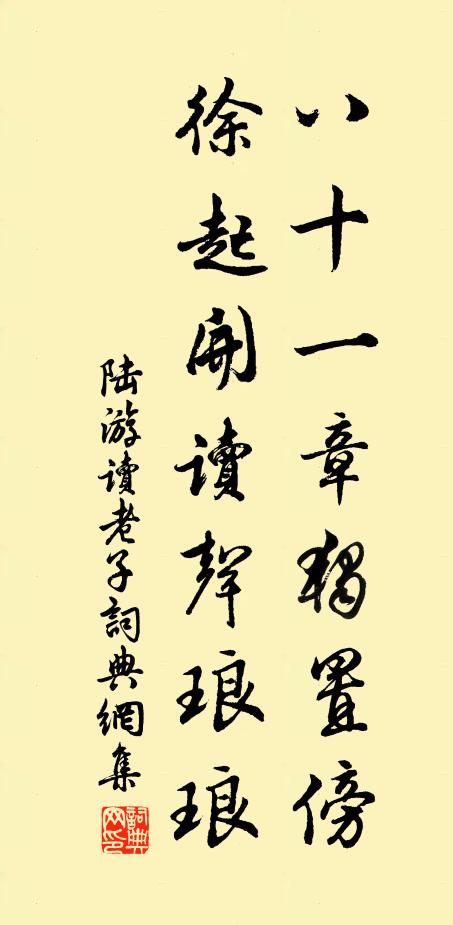 八十一章獨置傍
徐起開讀聲琅琅
陸游讀老子詞典網集
詞典網印